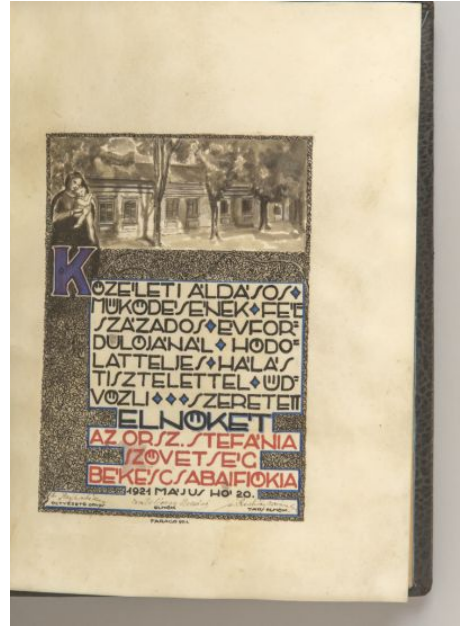 KÖZÉLETI ÁLDÁSOS
MŰKÖDÉSÉNEK FÉL
SZÁZADOS ÉVFOR=
DULÓJÁNÁL HÓDO=
LATTELJES HÁLÁS
TISZTELETTEL ÜD=
VÖZLI SZERETETT
ELNÖKÉT
AZ ORSZ. STEFÁNIA
SZÖVETSÉG
BÉKÉSCSABAI FIÓKJA
1921 MÁJUS HÓ 20.
ELNÖK
TÁRSELNÖK